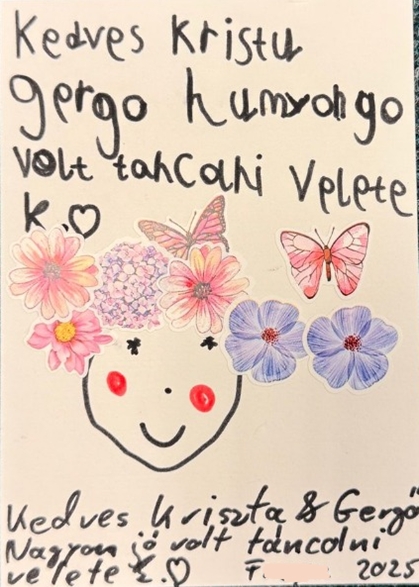 Kedves kristu
gergo humyohgo
volt tahcolhi velete
k.♡
Kedves Kriszta & Gergő
Nagyon jó volt táncolni
veletek.♡ F 2025